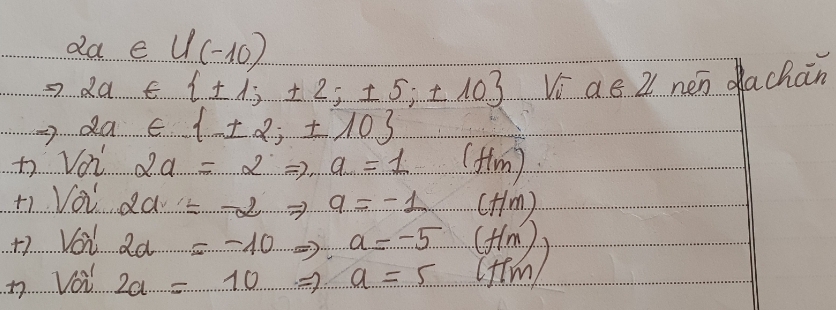 2a ∈ Ư(-10)
=> 2a ∈ {±1; ±2; ±5; ±10} Vì a ∈ Z nên 2a chẵn
=> 2a ∈ {±2; ±10}
+) Với 2a = 2 => a = 1 (tm)
+) Với 2a = -2 => a = -1 (tm)
+) Với 2a = -10 => a = -5 (tm)
+) Với 2a = 10 => a = 5 (tm)